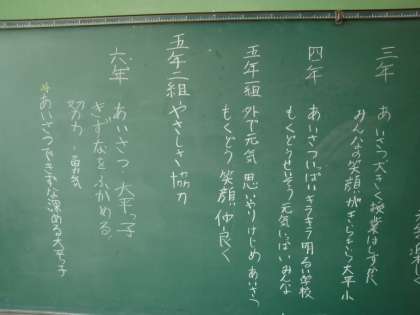 三年 あいさつ大きく 授業はしずかに
みんなの笑顔がきらきら大平小
四年 あいさついっぱいキラキラ明るい学校
もくどうせいそう 元気いっぱいみんな
五年一組 外で元気 思いやり はじめ あいさつ
もくどう 笑顔 仲良く
五年二組 やさしさ 協力
六年 あいさつ・大平っ子
きずなをふかめる
努力・勇気
あいさつできずな深める大平っ子